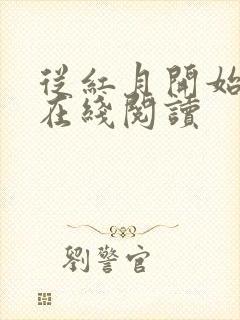 從紅月開始
在綫閱讀
劉警官